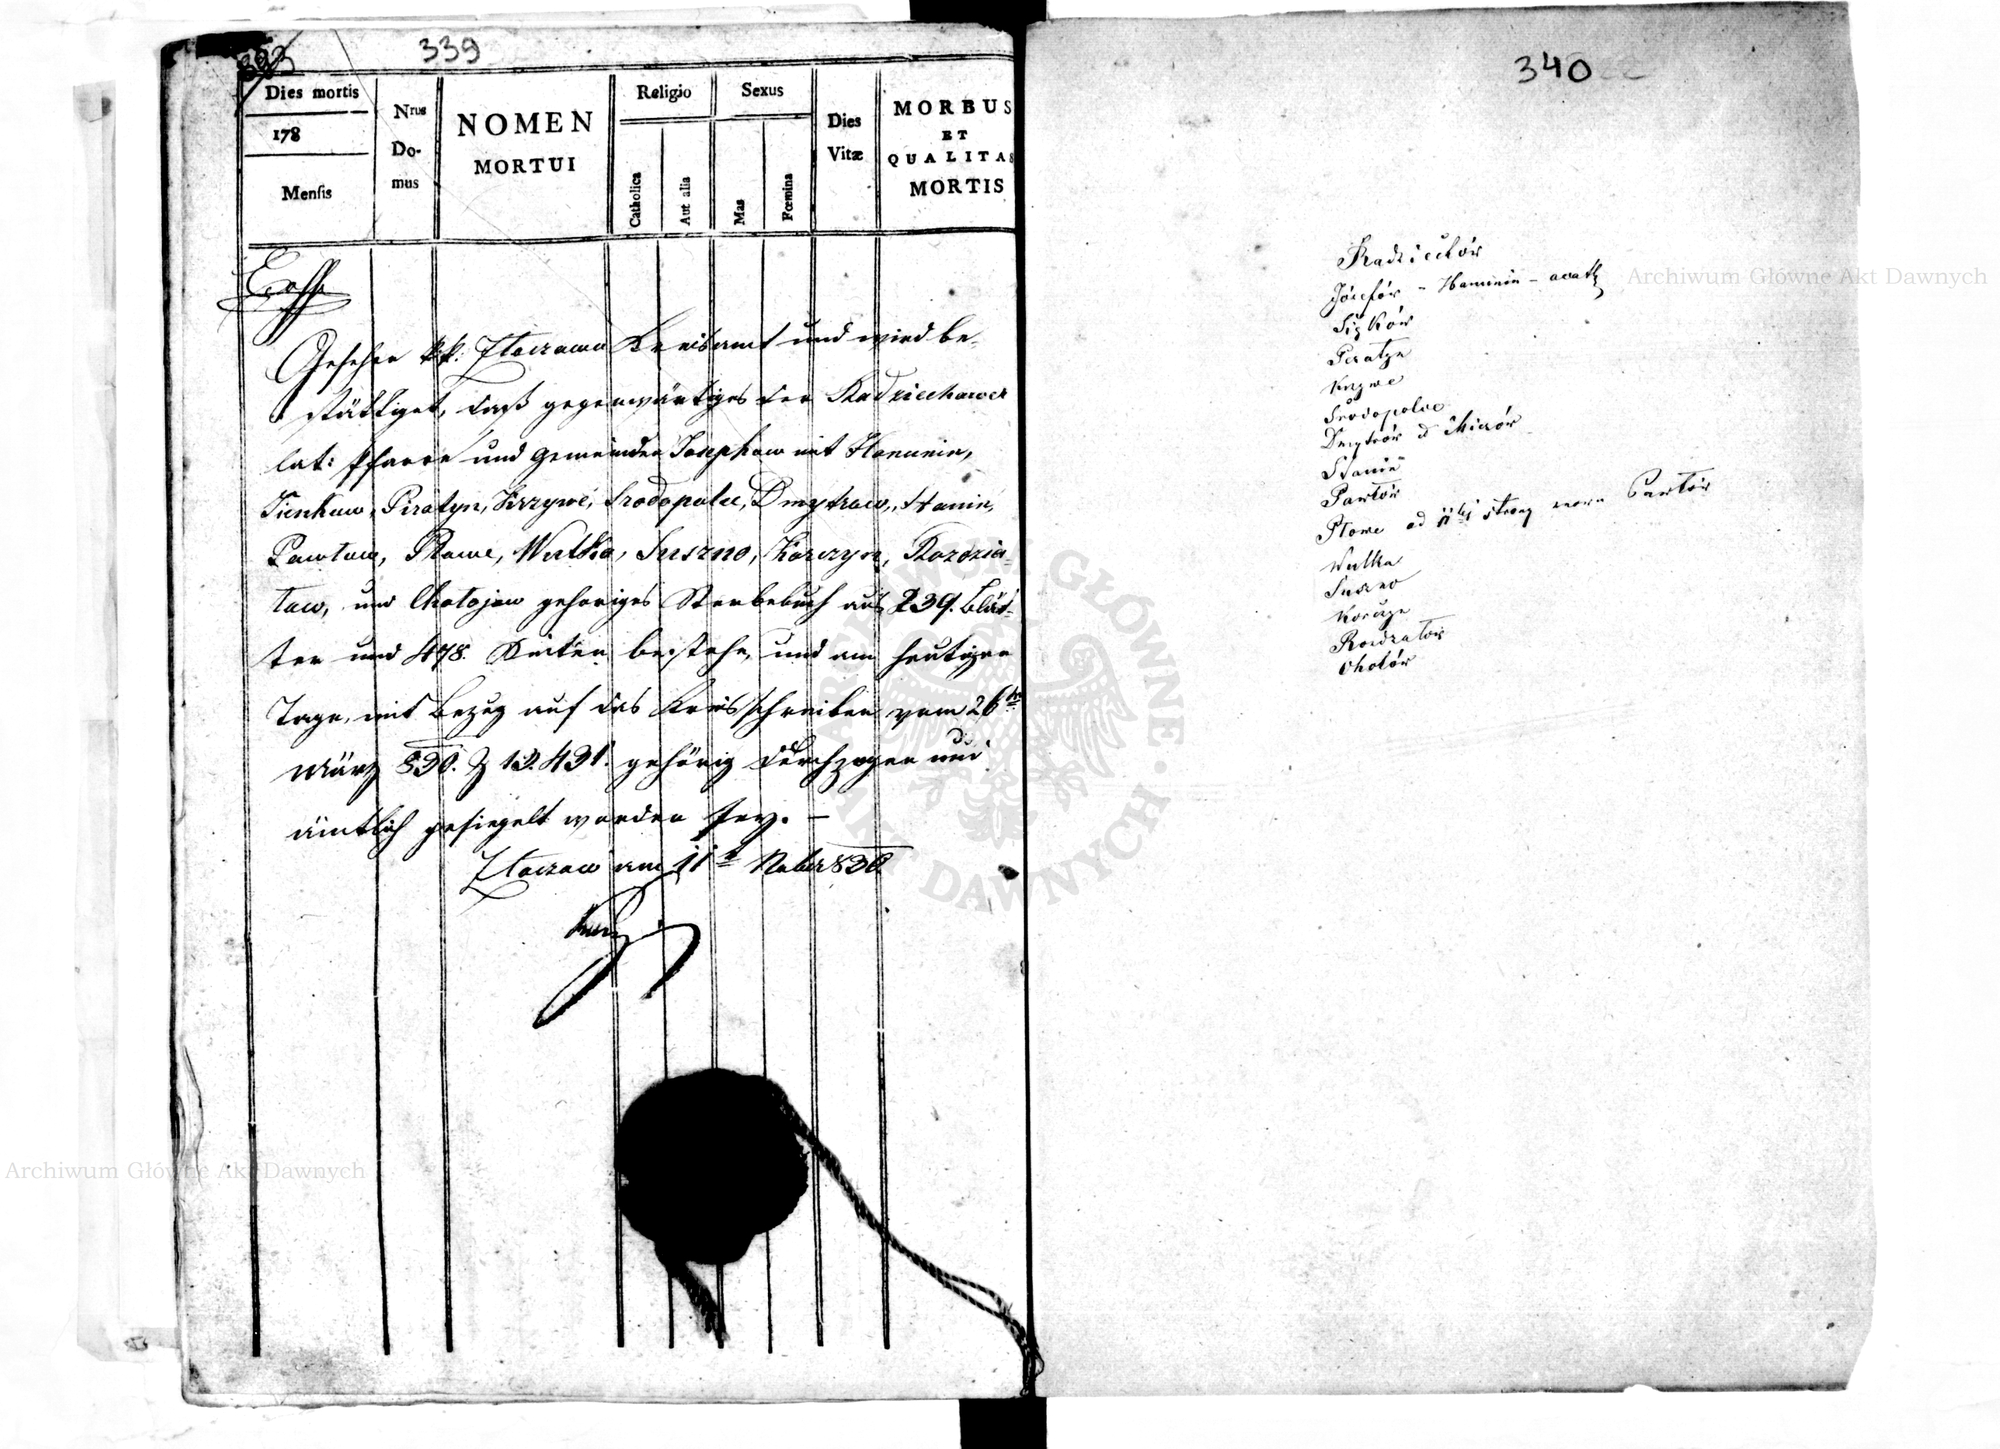 339
Dies mortis
178
Mensis
Nrus Do-mus
NOMEN
MORTUI
Religio
Catholica
Aut alia
Sexus
Mas
Fœmina
Dies
Vitæ
MORBUS
ET
QUALITAS
MORTIS
Gesehen kk: Zloczower Kreisamt und wird be-
stättiget, daß gegenwärtiges der Radziechower
lat: Pfarre und Gemeinden Josephow mit Hanunin,
Sienkow, Piratyn, Krzywe, Srodopolce, Dmytrow, Stanin,
Pawlow, Stowe, Wulka, Suszno, Korczyn, Rozdzia-
low, und Cholojow gehöriges Sterbebuch aus 239. Blät-
ter und 478. Seiten bestehe, und am heutigen
Tage, mit Bezug auf das Kreisschreiben vom 26ten
März 830. Z 13.431. gehörig durchzogen und
ämtlich gesiegelt worden sey. –
Zloczow am 11t 830.
340
Radziechów
Józefów - Hanunin -
Piratyn
Krzywe
Środopolce
Dmytrów
Stanin
Pawłów
Stowe od strony Pawłów
Wulka
Suszno
Korczyn
Rozdziałów
Archiwum Główne Akt Dawnych
Archiwum Główne Akt Dawnych
ARCHIWUM GŁÓWNE · AKT DAWNYCH ·